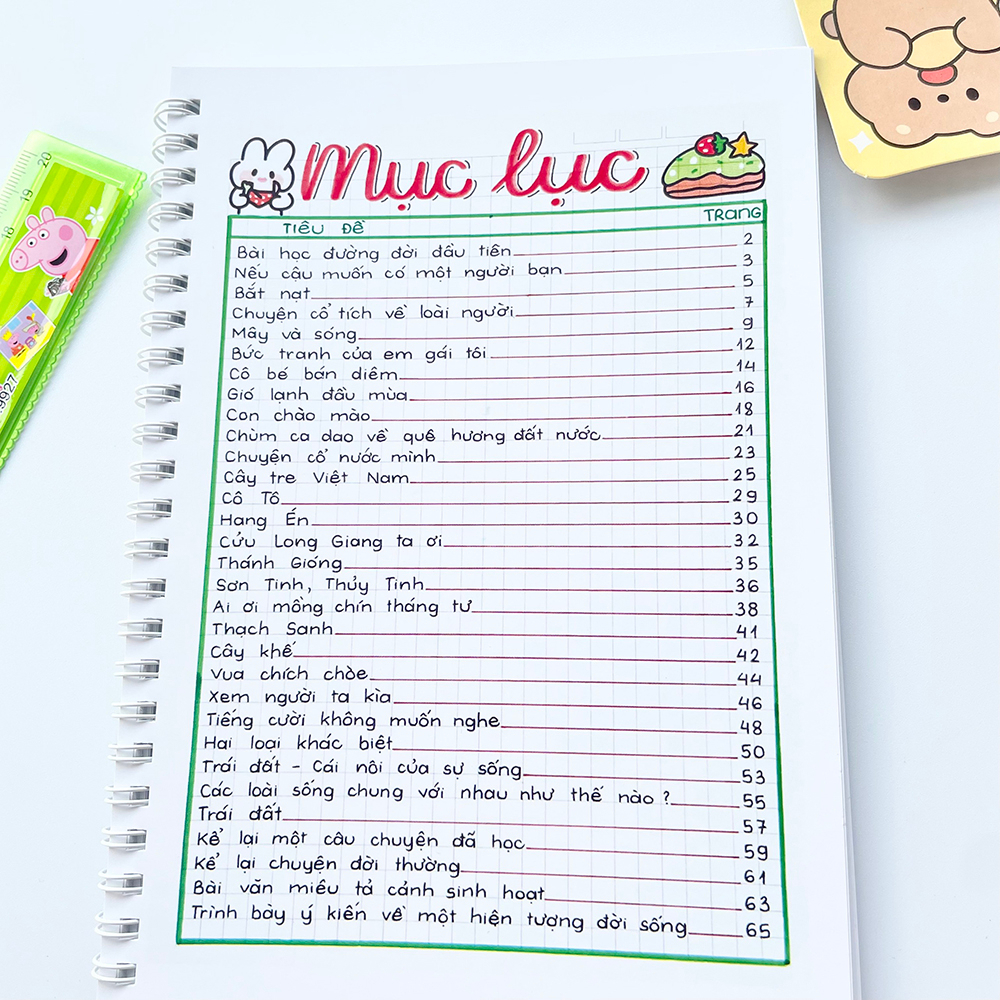 Mục lục
TIÊU ĐỀ TRANG
Bài học đường đời đầu tiên 2
Nếu cậu muốn có một người bạn 3
Bắt nạt 5
Chuyện cổ tích về loài người 7
Mây và sóng 9
Bức tranh của em gái tôi 12
Cô bé bán diêm 14
Gió lạnh đầu mùa 16
Con chào mào 18
Chùm ca dao về quê hương đất nước 21
Chuyện cổ nước mình 23
Cây tre Việt Nam 25
Cô Tô 29
Hang Én 30
Cửu Long Giang ta ơi 32
Thánh Gióng 35
Sơn Tinh, Thủy Tinh 36
Ai ơi mồng chín tháng tư 38
Thạch Sanh 41
Cây khế 42
Vua chích chòe 44
Xem người ta kìa 46
Tiếng cười không muốn nghe 48
Hai loại khác biệt 50
Trái đất - Cái nôi của sự sống 53
Các loài sống chung với nhau như thế nào? 55
Trái đất 57
Kể lại một câu chuyện đã học 59
Kể lại chuyện đời thường 61
Bài văn miêu tả cảnh sinh hoạt 63
Trình bày ý kiến về một hiện tượng đời sống 65
20
19
18